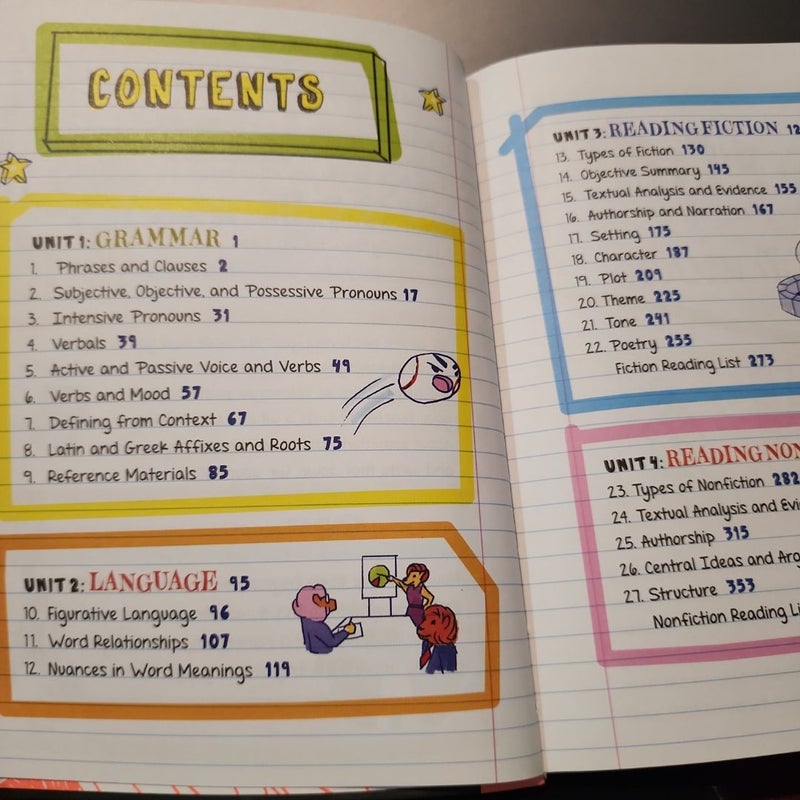 CONTENTS
UNIT 1: GRAMMAR 1
1. Phrases and Clauses 2
2. Subjective, Objective, and Possessive Pronouns 17
3. Intensive Pronouns 31
4. Verbals 39
5. Active and Passive Voice and Verbs 49
6. Verbs and Mood 57
7. Defining from Context 67
8. Latin and Greek Affixes and Roots 75
9. Reference Materials 85
UNIT 2: LANGUAGE 95
10. Figurative Language 96
11. Word Relationships 107
12. Nuances in Word Meanings 119
UNIT 3: READING FICTION 12
13. Types of Fiction 130
14. Objective Summary 145
15. Textual Analysis and Evidence 155
16. Authorship and Narration 167
17. Setting 175
18. Character 187
19. Plot 209
20. Theme 225
21. Tone 241
22. Poetry 255
Fiction Reading List 273
UNIT 4: READING NON
23. Types of Nonfiction 282
24. Textual Analysis and Evi
25. Authorship 315
26. Central Ideas and Arg
27. Structure 353
Nonfiction Reading Li